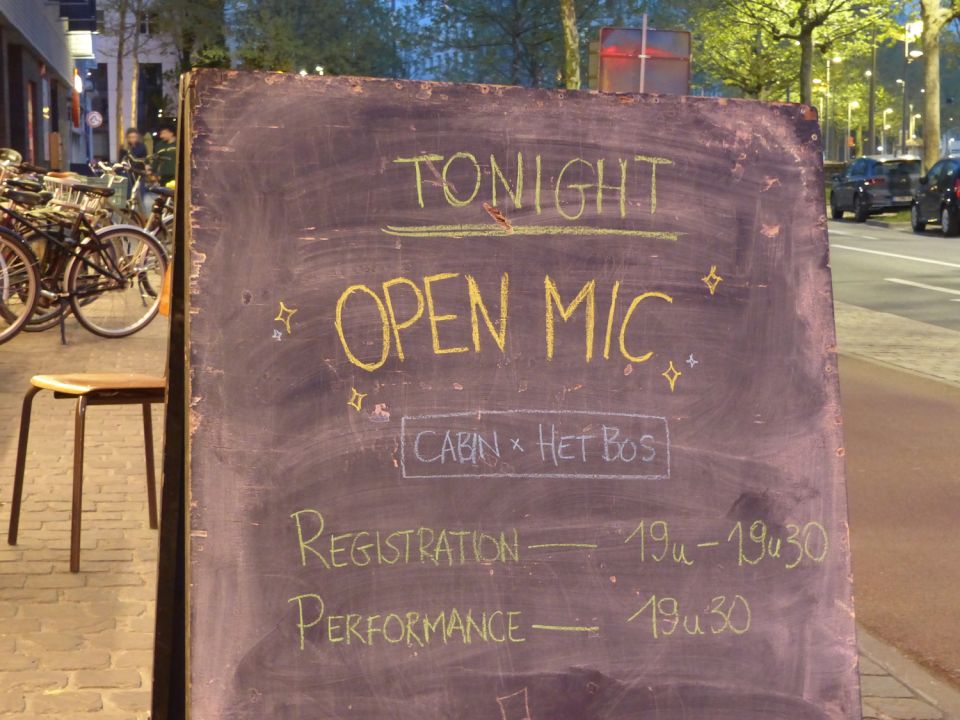 TONIGHT
OPEN MIC
CABIN x HET BOS
REGISTRATION — 19u - 19u30
PERFORMANCE — 19u30